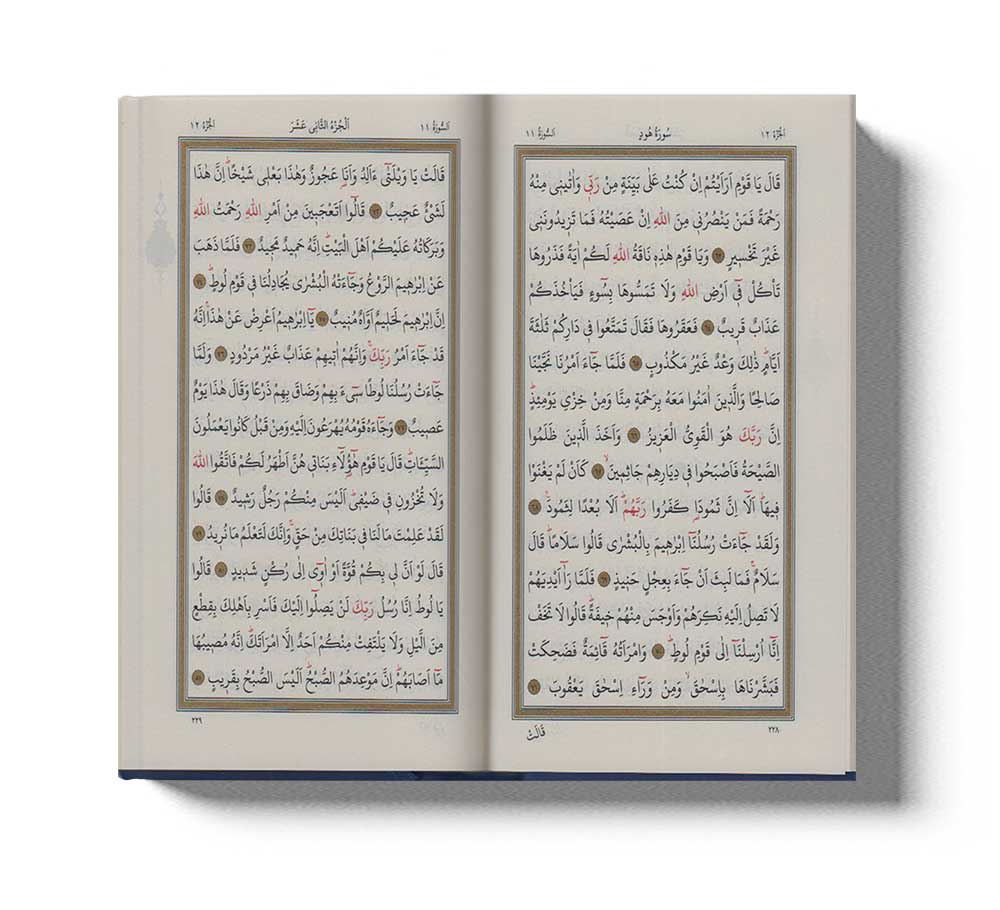 الجزء ١٢
سُورَةُ هُودٍ
اَلسُّورَةُ ١١
قَالَ يَا قَوْمِ اَرَاَيْتُمْ اِنْ كُنْتُ عَلٰى بَيِّنَةٍ مِنْ رَبّٖى وَاٰتٰينٖى مِنْهُ
رَحْمَةً فَمَنْ يَنْصُرُنٖى مِنَ اللهِ اِنْ عَصَيْتُهُ فَمَا تَزٖيدُونَنٖى
غَيْرَ تَخْسٖيرٍ ﴿٦٣﴾ وَيَا قَوْمِ هٰذِهٖ نَاقَةُ اللهِ لَكُمْ اٰيَةً فَذَرُوهَا
تَأْكُلْ فٖٓى اَرْضِ اللهِ وَلَا تَمَسُّوهَا بِسُٓوءٍ فَيَأْخُذَكُمْ
عَذَابٌ قَرٖيبٌ ﴿٦٤﴾ فَعَقَرُوهَا فَقَالَ تَمَتَّعُوا فٖى دَارِكُمْ ثَلٰثَةَ
اَيَّامٍؕ ذٰلِكَ وَعْدٌ غَيْرُ مَكْذُوبٍ ﴿٦٥﴾ فَلَمَّا جَٓاءَ اَمْرُنَا نَجَّيْنَا
صَالِحًا وَالَّذٖينَ اٰمَنُوا مَعَهُ بِرَحْمَةٍ مِنَّا وَمِنْ خِزْىِ يَوْمِئِذٍؕ
اِنَّ رَبَّكَ هُوَ الْقَوِىُّ الْعَزٖيزُ ﴿٦٦﴾ وَاَخَذَ الَّذٖينَ ظَلَمُوا
الصَّيْحَةُ فَاَصْبَحُوا فٖى دِيَارِهِمْ جَاثِمٖينَۙ ﴿٦٧﴾ كَاَنْ لَمْ يَغْنَوْا
فٖيهَاؕ اَلَٓا اِنَّ ثَمُودَا۬ كَفَرُوا رَبَّهُمْؕ اَلَا بُعْدًا لِثَمُودَ۟ ﴿٦٨﴾
وَلَقَدْ جَٓاءَتْ رُسُلُنَٓا اِبْرٰهٖيمَ بِالْبُشْرٰى قَالُوا سَلَامًاؕ قَالَ
سَلَامٌۚ فَمَا لَبِثَ اَنْ جَٓاءَ بِعِجْلٍ حَنٖيذٍ ﴿٦٩﴾ فَلَمَّا رَآٰ اَيْدِيَهُمْ
لَا تَصِلُ اِلَيْهِ نَكِرَهُمْ وَاَوْجَسَ مِنْهُمْ خٖيفَةًؕ قَالُوا لَا تَخَفْ
اِنَّٓا اُرْسِلْنَٓا اِلٰى قَوْمِ لُوطٍؕ ﴿٧٠﴾ وَامْرَاَتُهُ قَٓائِمَةٌ فَضَحِكَتْ
فَبَشَّرْنَاهَا بِاِسْحٰقَۙ وَمِنْ وَرَٓاءِ اِسْحٰقَ يَعْقُوبَ ﴿٧١﴾
٢٢٨
قَالَتْ
اَلسُّورَةُ ١١
اَلْجُزْءُ الثَّانِى عَشَرَ
الجزء ١٢
قَالَتْ يَا وَيْلَتٰٓى ءَاَلِدُ وَاَنَا۬ عَجُوزٌ وَهٰذَا بَعْلٖى شَيْخًاؕ اِنَّ هٰذَا
لَشَىْءٌ عَجٖيبٌ ﴿٧٢﴾ قَالُٓوا اَتَعْجَبٖينَ مِنْ اَمْرِ اللهِ رَحْمَتُ اللهِ
وَبَرَكَاتُهُ عَلَيْكُمْ اَهْلَ الْبَيْتِؕ اِنَّهُ حَمٖيدٌ مَجٖيدٌ ﴿٧٣﴾ فَلَمَّا ذَهَبَ
عَنْ اِبْرٰهٖيمَ الرَّوْعُ وَجَٓاءَتْهُ الْبُشْرٰى يُجَادِلُنَا فٖى قَوْمِ لُوطٍؕ ﴿٧٤﴾
اِنَّ اِبْرٰهٖيمَ لَحَلٖيمٌ اَوَّاهٌ مُنٖيبٌ ﴿٧٥﴾ يَٓا اِبْرٰهٖيمُ اَعْرِضْ عَنْ هٰذَاۚ اِنَّهُ
قَدْ جَٓاءَ اَمْرُ رَبِّكَۚ وَاِنَّهُمْ اٰتٖيهِمْ عَذَابٌ غَيْرُ مَرْدُودٍ ﴿٧٦﴾ وَلَمَّا
جَٓاءَتْ رُسُلُنَا لُوطًا سٖٓىءَ بِهِمْ وَضَاقَ بِهِمْ ذَرْعًا وَقَالَ هٰذَا يَوْمٌ
عَصٖيبٌ ﴿٧٧﴾ وَجَٓاءَهُ قَوْمُهُ يُهْرَعُونَ اِلَيْهِ وَمِنْ قَبْلُ كَانُوا يَعْمَلُونَ
السَّيِّـَٔاتِؕ قَالَ يَا قَوْمِ هٰٓؤُلَٓاءِ بَنَاتٖى هُنَّ اَطْهَرُ لَكُمْ فَاتَّقُوا اللهَ
وَلَا تُخْزُونِ فٖى ضَيْفٖىؕ اَلَيْسَ مِنْكُمْ رَجُلٌ رَشٖيدٌ ﴿٧٨﴾ قَالُوا
لَقَدْ عَلِمْتَ مَا لَنَا فٖى بَنَاتِكَ مِنْ حَقٍّۚ وَاِنَّكَ لَتَعْلَمُ مَا نُرٖيدُ ﴿٧٩﴾
قَالَ لَوْ اَنَّ لٖى بِكُمْ قُوَّةً اَوْ اٰوٖٓى اِلٰى رُكْنٍ شَدٖيدٍ ﴿٨٠﴾ قَالُوا
يَا لُوطُ اِنَّا رُسُلُ رَبِّكَ لَنْ يَصِلُٓوا اِلَيْكَ فَاَسْرِ بِاَهْلِكَ بِقِطْعٍ
مِنَ الَّيْلِ وَلَا يَلْتَفِتْ مِنْكُمْ اَحَدٌ اِلَّا امْرَاَتَكَؕ اِنَّهُ مُصٖيبُهَا
مَٓا اَصَابَهُمْؕ اِنَّ مَوْعِدَهُمُ الصُّبْحُؕ اَلَيْسَ الصُّبْحُ بِقَرٖيبٍ ﴿٨١﴾
٢٢٩